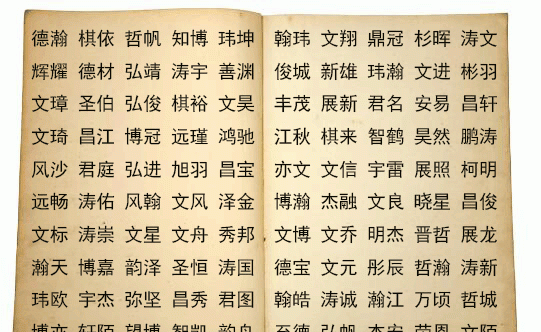 德瀚 棋依 哲帆 知博 玮坤 翰玮 文翔 鼎冠 杉晖 涛文
辉耀 德材 弘靖 涛宇 善渊 俊城 新雄 玮瀚 文进 彬羽
文璋 圣伯 弘俊 棋裕 文昊 丰茂 展新 君名 安易 昌轩
文琦 昌江 博冠 远瑾 鸿驰 江秋 棋来 智鹤 昊然 鹏涛
风沙 君庭 弘进 旭羽 昌宝 亦文 文信 宇雷 展照 柯明
远畅 涛佑 风翰 文风 泽金 博瀚 杰融 文良 晓星 昌俊
文标 涛崇 文星 文舟 秀邦 文博 文乔 明杰 晋哲 展龙
瀚天 博嘉 韵泽 圣恒 涛国 德宝 文元 彤辰 哲瀚 涛新
玮欧 宇杰 弥坚 昌秀 君图 翰皓 涛诚 瀚江 万顷 哲城
博亦 轩陌 望博 智凯 韵舟 至德 弘帆 文陌